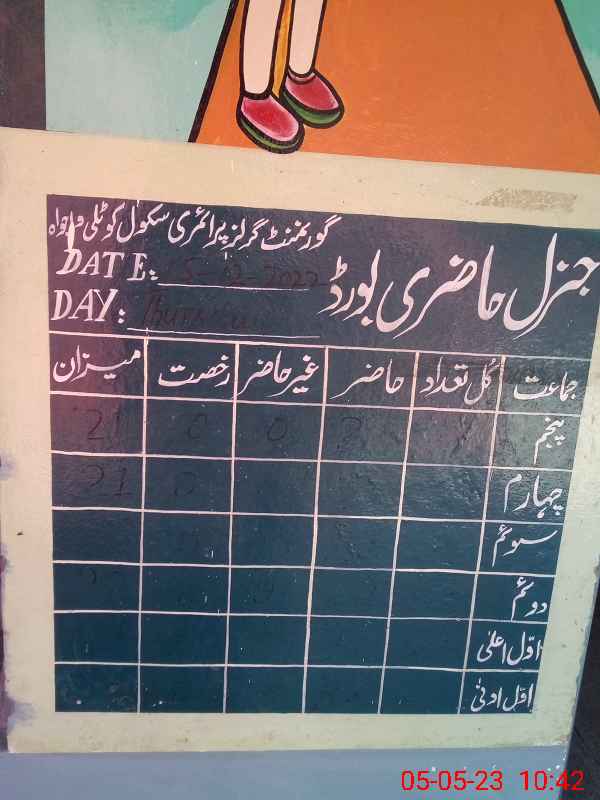 گورنمنٹ گرلز پرائمری سکول کوٹلی
جنرل حاضری بورڈ
DATE:
DAY:
جماعت کل تعداد حاضر غیر حاضر رخصت میزان
پنجم 0 0 21
چہارم 0 21
سوئم
دوئم
اوّل اعلیٰ
اوّل ادنیٰ
05-05-23 10:42